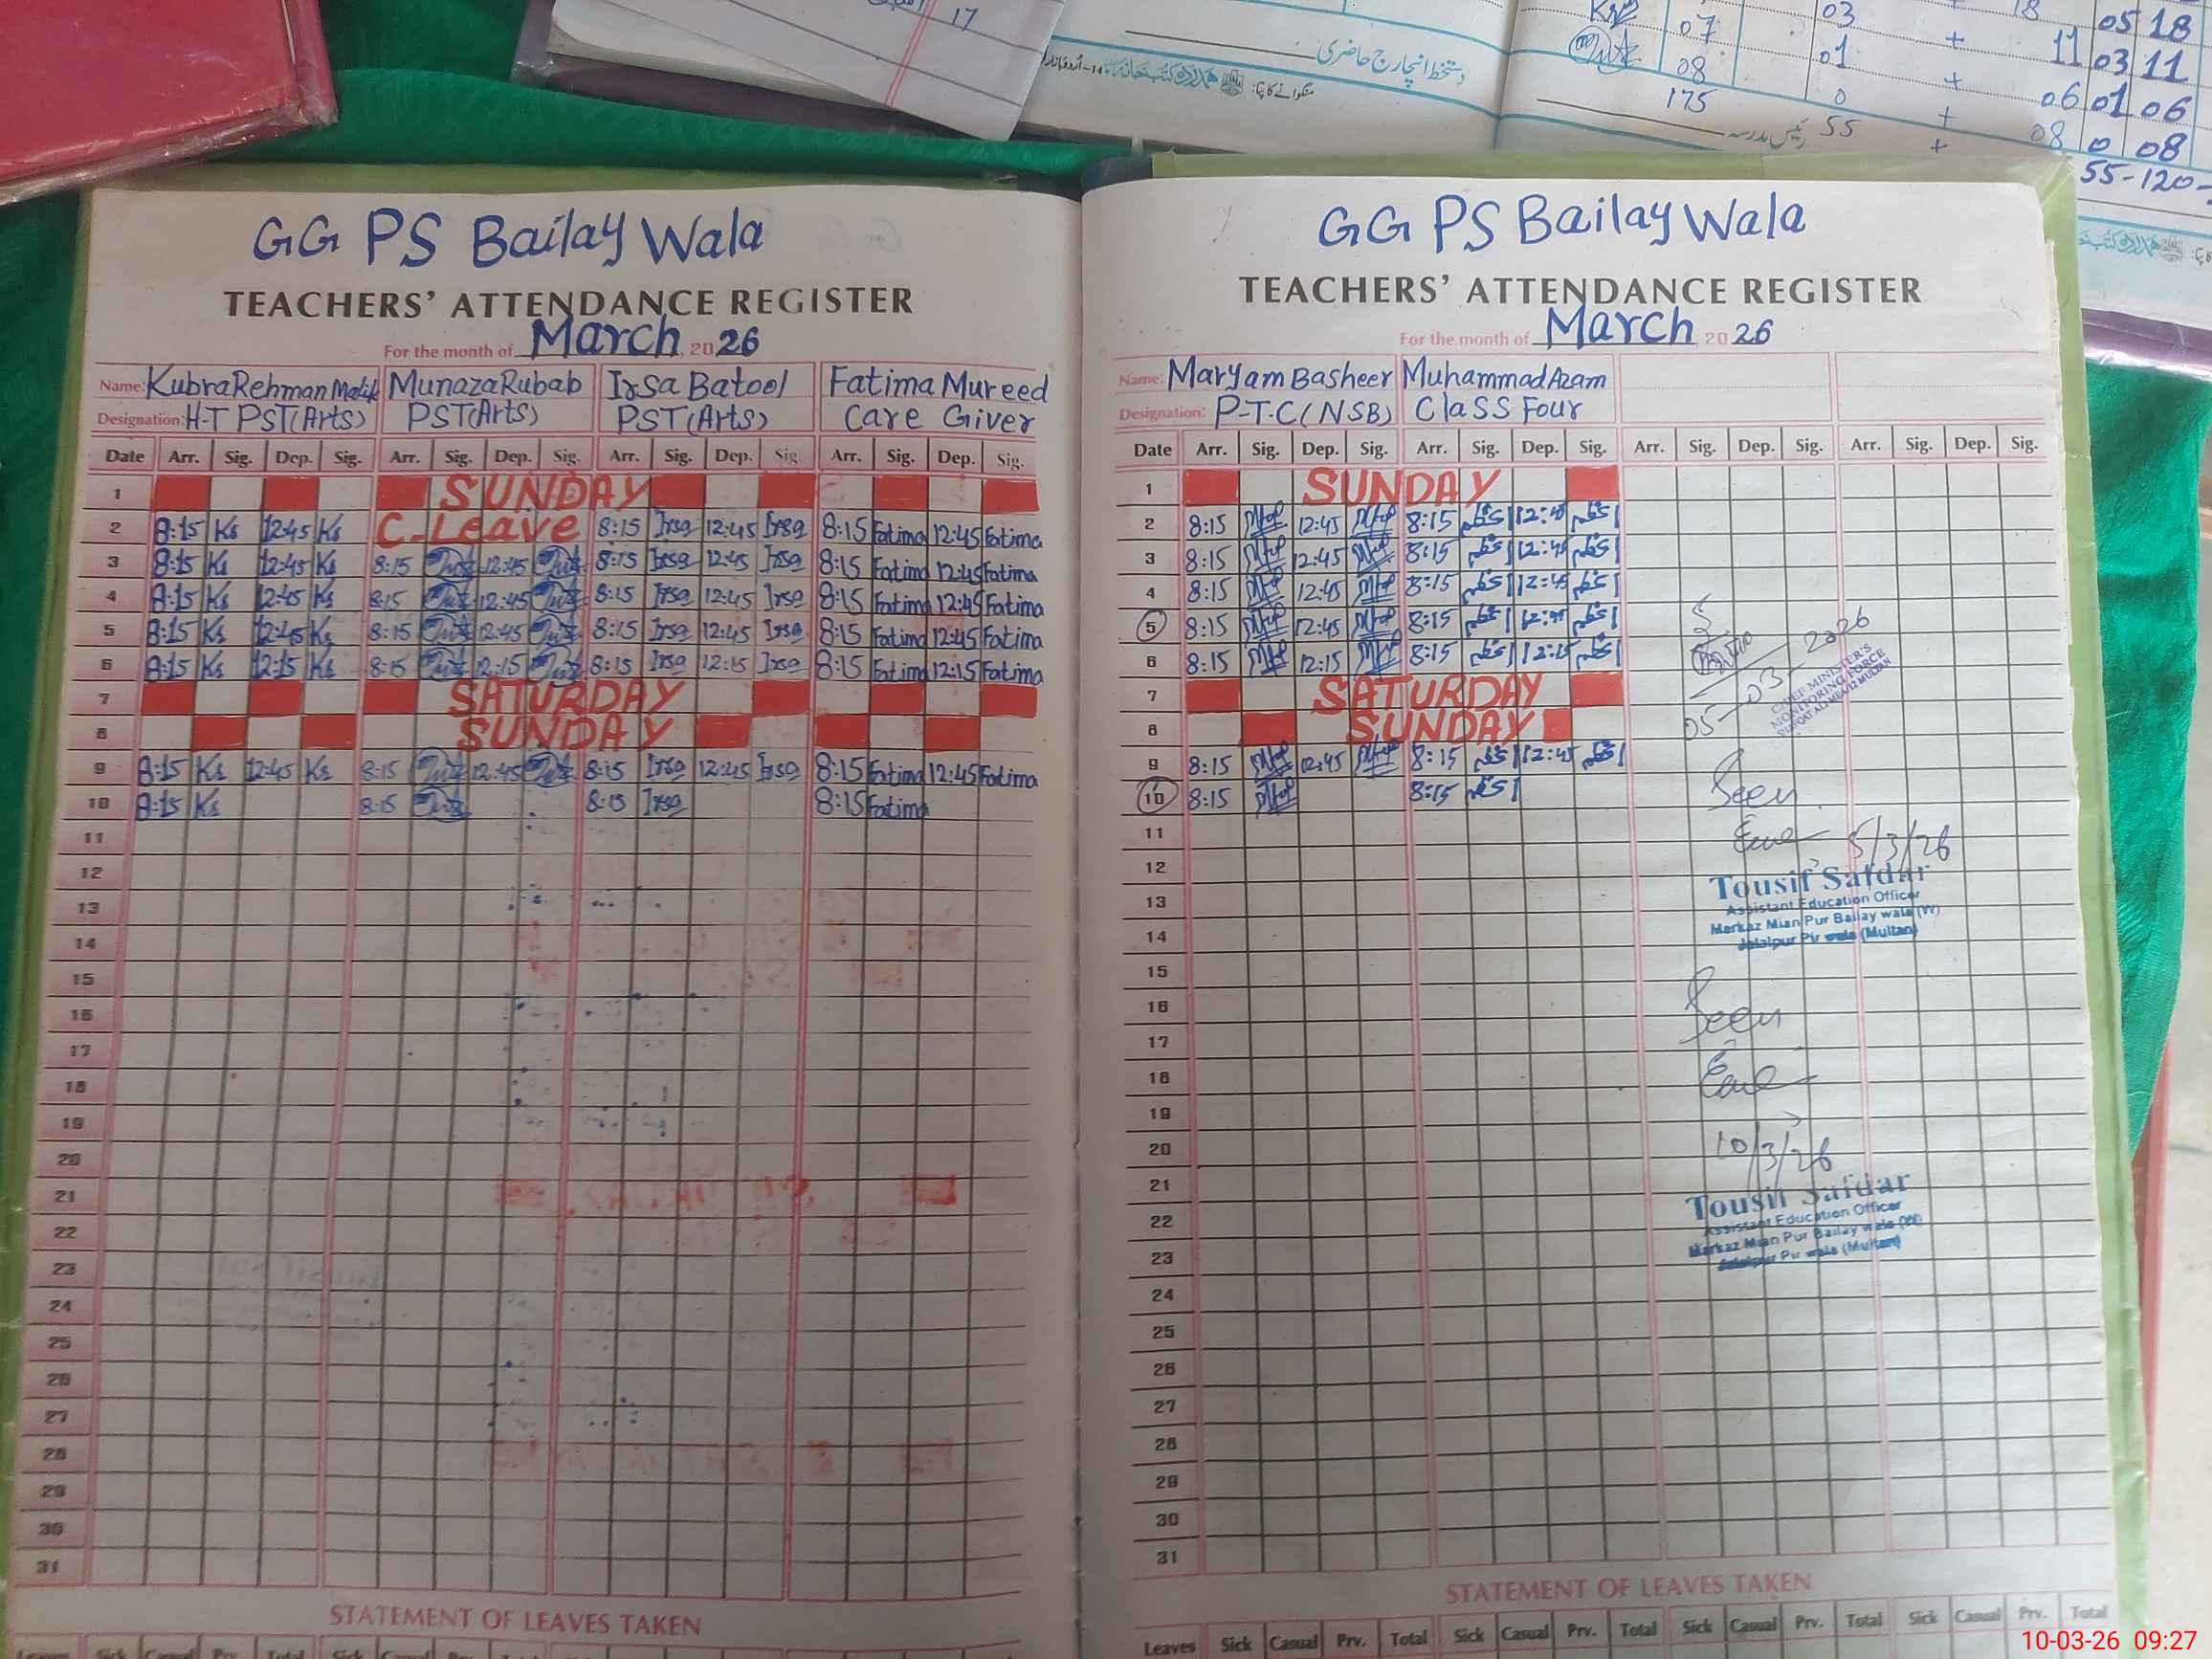 17
07 03 18 05 18
08 01 + 11 03 11
175 0 + 06 01 06
55 + 08 0 08
55-120-
دستخط انچارج حاضری
رئیس مدرسہ
منگوانے کا پتہ:
GG PS Bailay Wala
TEACHERS' ATTENDANCE REGISTER
For the month of March 2026
Name: Kubra Rehman Malik Munaza Rubab Irsa Batool Fatima Mureed
Designation: H-T PST(Arts) PST(Arts) PST(Arts) Care Giver
Date Arr. Sig. Dep. Sig. Arr. Sig. Dep. Sig. Arr. Sig. Dep. Sig. Arr. Sig. Dep. Sig.
1 SUNDAY
2 8:15 Ks 12:45 Ks C-Leave 8:15 Irsa 12:45 Irsa 8:15 Fatima 12:45 Fatima
3 8:15 Ks 12:45 Ks 8:15 12:45 8:15 Irsa 12:45 Irsa 8:15 Fatima 12:45 Fatima
4 8:15 Ks 12:45 Ks 8:15 12:45 8:15 Irsa 12:45 Irsa 8:15 Fatima 12:45 Fatima
5 8:15 Ks 12:45 Ks 8:15 12:45 8:15 Irsa 12:45 Irsa 8:15 Fatima 12:45 Fatima
6 8:15 Ks 12:15 Ks 8:15 12:15 8:15 Irsa 12:15 Irsa 8:15 Fatima 12:15 Fatima
7 SATURDAY
8 SUNDAY
9 8:15 Ks 12:45 Ks 8:15 12:45 8:15 Irsa 12:45 Irsa 8:15 Fatima 12:45 Fatima
10 8:15 Ks 8:15 8:15 Irsa 8:15 Fatima
11
12
13
14
15
16
17
18
19
20
21
22
23
24
25
26
27
28
29
30
31
STATEMENT OF LEAVES TAKEN
Leaves Sick Casual Prv. Total Sick Casual Prv.
GG PS Bailay Wala
TEACHERS' ATTENDANCE REGISTER
For the month of March 2026
Name: Maryam Basheer Muhammad Azam
Designation: P-T-C(NSB) ClaSS Four
Date Arr. Sig. Dep. Sig. Arr. Sig. Dep. Sig. Arr. Sig. Dep. Sig. Arr. Sig. Dep. Sig.
1 SUNDAY
2 8:15 12:45 8:15 اعظم 12:45 اعظم
3 8:15 12:45 8:15 اعظم 12:45 اعظم
4 8:15 12:45 8:15 اعظم 12:45 اعظم
5 8:15 12:45 8:15 اعظم 12:45 اعظم
6 8:15 12:15 8:15 اعظم 12:15 اعظم
7 SATURDAY
8 SUNDAY
9 8:15 12:45 8:15 اعظم 12:45 اعظم
10 8:15 8:15 اعظم
11
12
13
14
15
16
17
18
19
20
21
22
23
24
25
26
27
28
29
30
31
05-03-2026
CHIEF MINISTER'S
MONITORING FORCE
Seen
5/3/26
Tousif Safdar
Assistant Education Officer
Markaz Mian Pur Bailay wala (W)
Jalalpur Pir wala (Multan)
Seen
10/3/26
Tousif Safdar
Assistant Education Officer
Markaz Mian Pur Bailay wala (W)
Jalalpur Pir wala (Multan)
STATEMENT OF LEAVES TAKEN
Leaves Sick Casual Prv. Total Sick Casual Prv. Total Sick Casual Prv. Total Sick Casual Prv. Total
10-03-26 09:27